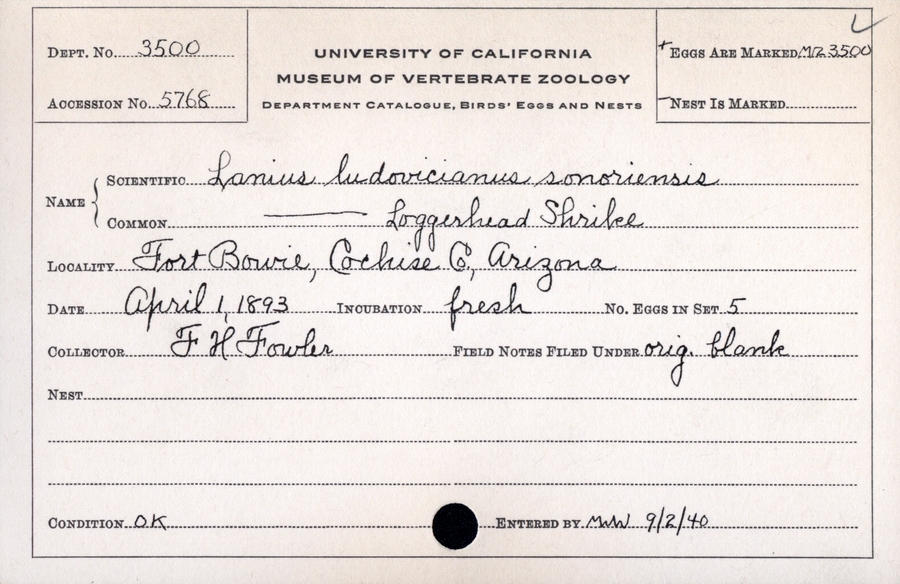 Dept. No. 3500
Accession No. 5768
UNIVERSITY OF CALIFORNIA
MUSEUM OF VERTEBRATE ZOOLOGY
Department Catalogue, Birds' Eggs and Nests
+ Eggs Are Marked MZ 3500
— Nest Is Marked
Name { Scientific Lanius ludovicianus sonoriensis
Common —— Loggerhead Shrike
Locality Fort Bowie, Cochise Co., Arizona
Date April 1, 1893 Incubation fresh No. Eggs in Set 5
Collector F H Fowler Field Notes Filed Under orig. blank
Nest
Condition OK Entered by 9/2/40